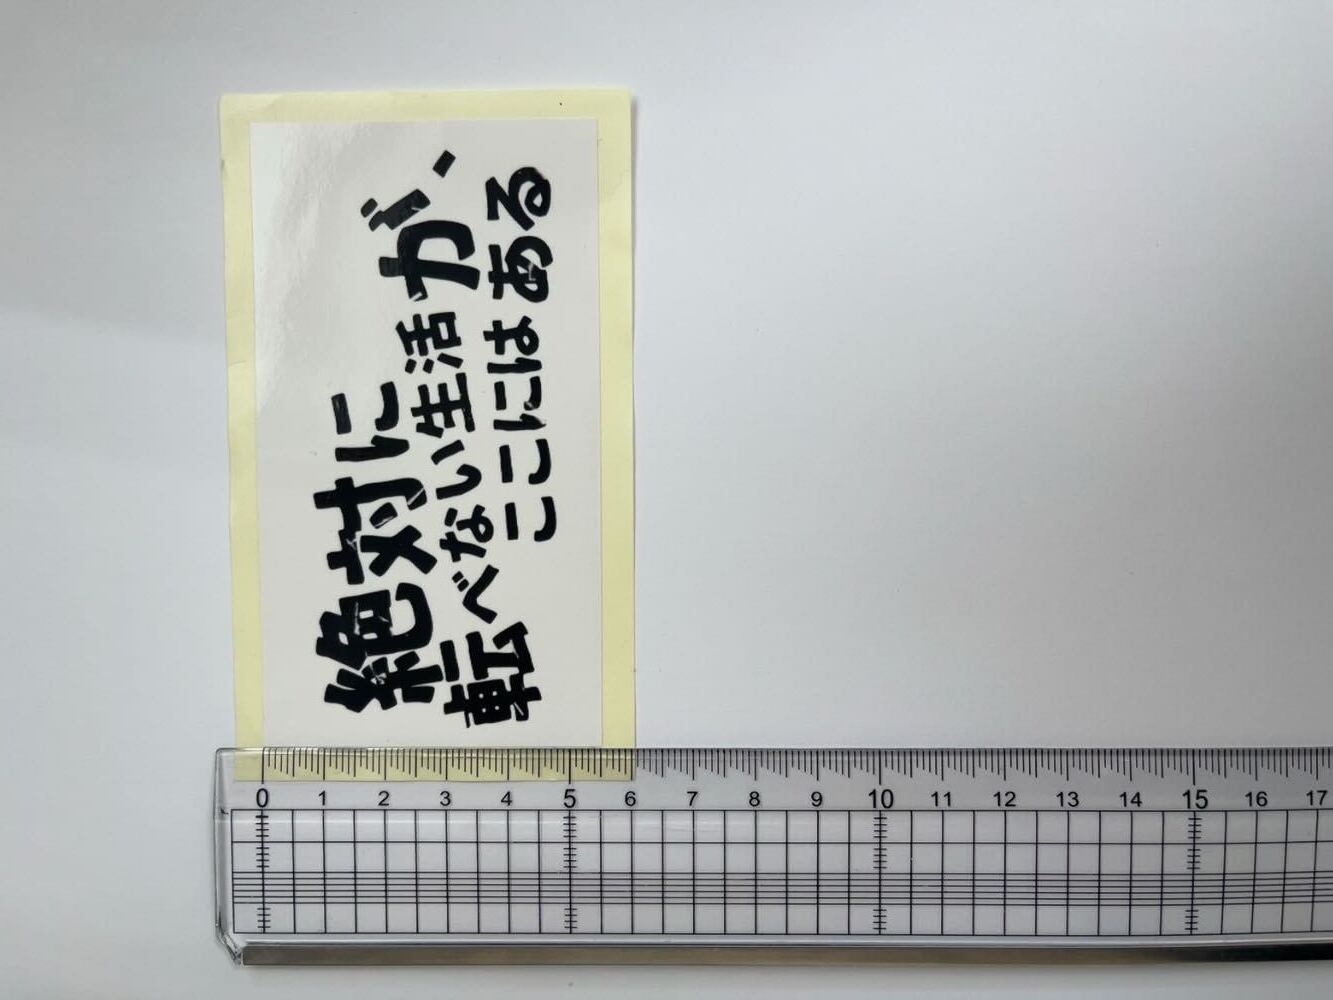 絶対に
転べない生活が、
ここにはある
0 1 2 3 4 5 6 7 8 9 10 11 12 13 14 15 16 17